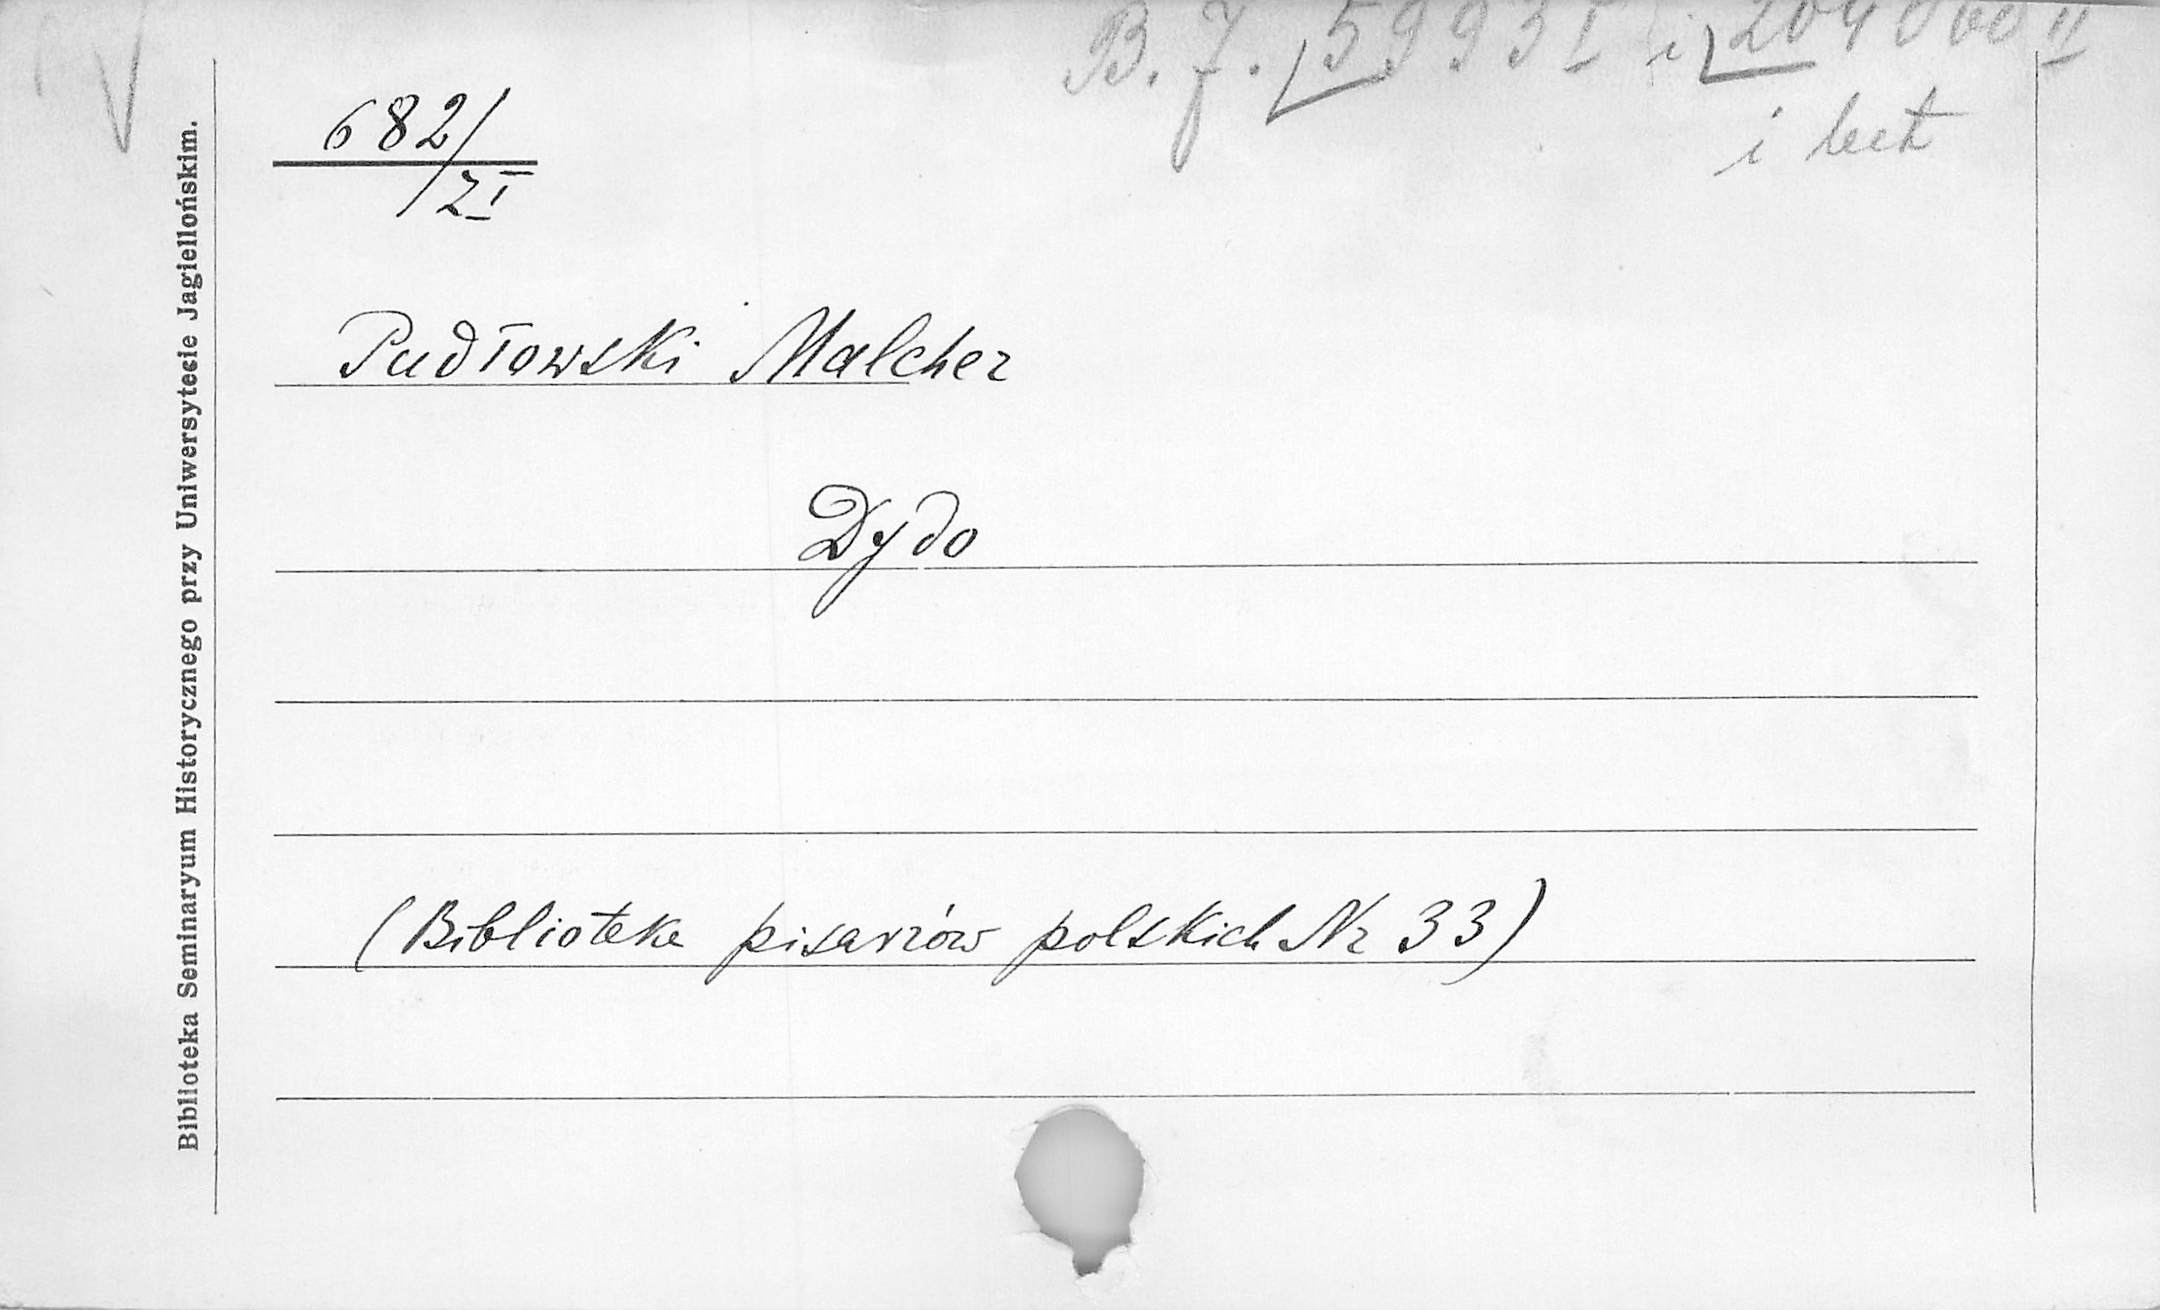 B. J. 5993 I i 204060 II
i lect
682/
ZI
Pudłowski Malcher
Dydo
(Biblioteka pisarzów polskich Nr 33)
Biblioteka Seminaryum Historycznego przy Uniwersytecie Jagiellońskim.